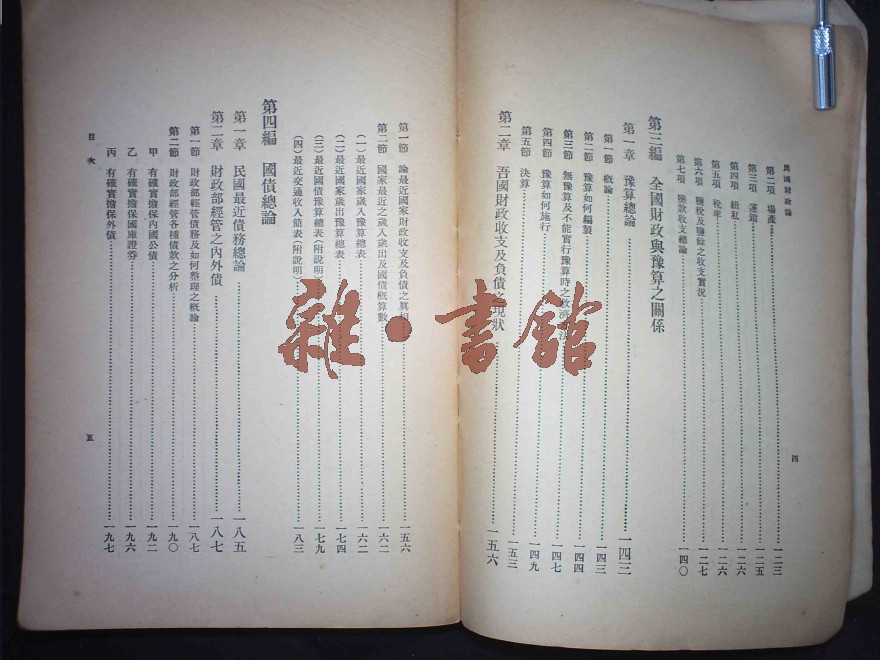 民國財政論
第二項 場產 一二三
第三項 運銷 一二五
第四項 緝私 一二六
第五項 稅率 一二六
第六項 鹽稅及鹽餘之收支實況 一二七
第七項 鹽款收支總論 一四〇
第三編 全國財政與豫算之關係
第一章 豫算總論 一四三
第一節 概論 一四三
第二節 豫算如何編製 一四四
第三節 無豫算及不能實行豫算時之救濟法 一四七
第四節 豫算如何施行 一四九
第五節 決算 一五三
第二章 吾國財政收支及負債之現狀 一五六
四
第一節 論最近國家財政收支及負債之 一五六
第二節 國家最近之歲入歲出及國債概算數 一六二
(一)最近國家歲入豫算總表 一六二
(二)最近國家歲出豫算總表 一七四
(三)最近國債豫算總表(附說明) 一七九
(四)最近交通收入簡表(附說明) 一八三
第四編 國債總論
第一章 民國最近債務總論 一八五
第二章 財政部經管之內外債 一八七
第一節 財政部經管債務及如何整理之概論 一八七
第二節 財政部經管各種債款之分析 一九〇
甲 有確實擔保內國公債 一九二
乙 有確實擔保國庫證券 一九六
丙 有確實擔保外債 一九七
目次
五
雜·書館